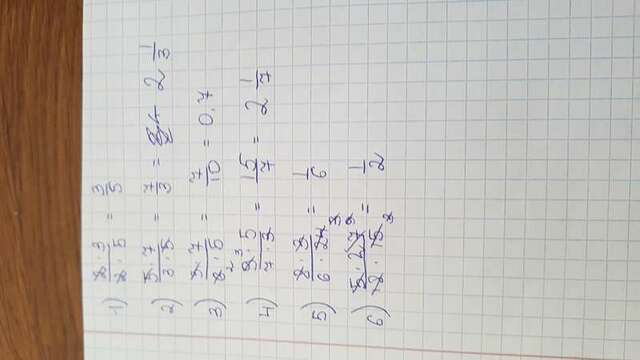 1) 2 · 3 / 2 · 5 = 3/5
2) 5 · 7 / 3 · 5 = 7/3 = 2 1/3
3) 7 / · 5 = 7/10 = 0,7
2
4) 9 3 · 5 / 7 · 3 = 15/7 = 2 1/7
5) 8 · 3 / 6 · 24 = 1/6
3
6) 5 · 2 / 12 · 15 2 = 1/2